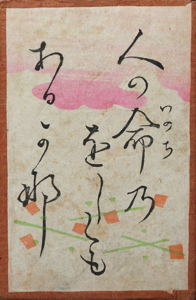 人の命乃
いのち
をしくも
ある可那